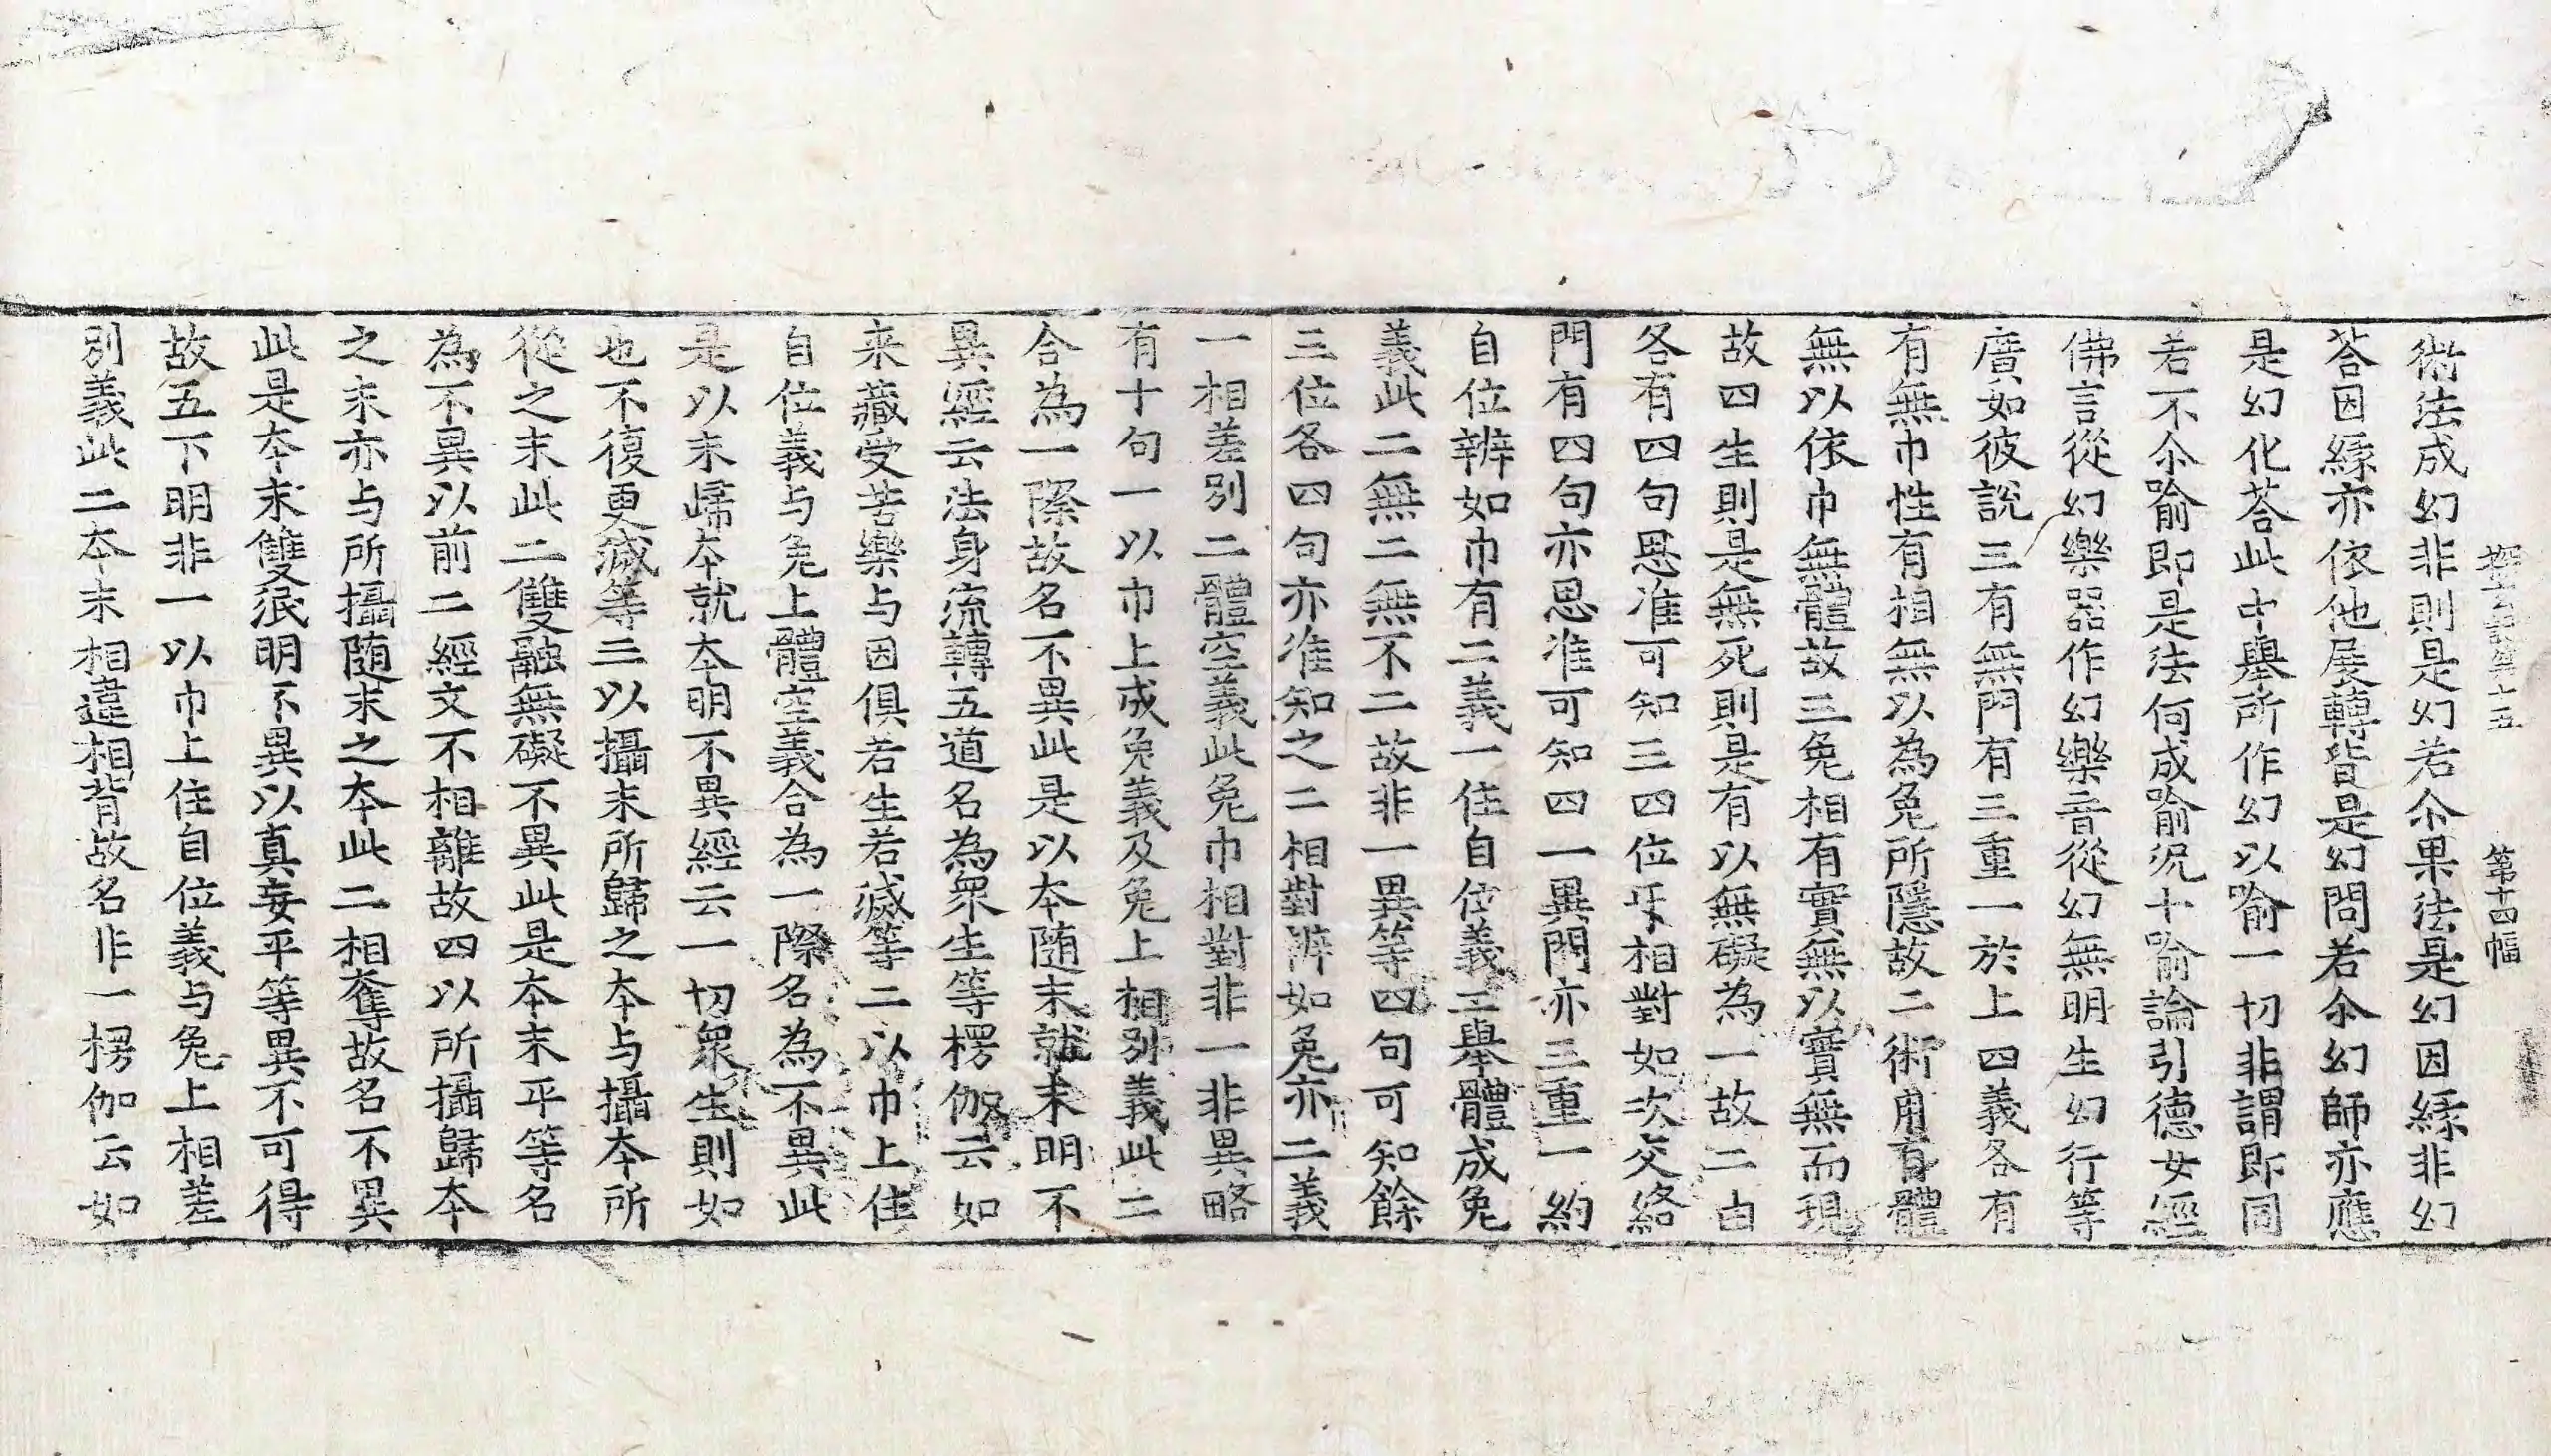 探玄記第十五 第十四幅
術法成幻非則是幻若尒果法是幻因縁非幻
荅因縁亦依他展轉皆是幻問若尒幻師亦應
是幻化荅此中舉所作幻以喻一切非謂即同
若不尒喻即是法何成喻況十喻論引德女經
佛言從幻樂器作幻樂音從幻無明生幻行等
廣如彼說三有無門有三重一於上四義各有
有無巾性有相無以為兔所隱故二術用有體
無以依巾無體故三兔相有實無以實無而現
故四生則是無死則是有以無礙為一故二由
各有四句思准可知三四位㸦相對如次交絡
門有四句亦思准可知四一異門亦三重一約
自位辨如巾有二義一住自位義二舉體成兔
義此二無二無不二故非一異等四句可知餘
三位各四句亦准知之二相對辨如兔亦二義
一相差別二體空義此兔巾相對非一非異略
有十句一以巾上成兔義及兔上相別義此二
合為一際故名不異此是以本随末就末明不
異經云法身流轉五道名為衆生等楞伽云如
来藏受苦樂与因俱若生若滅等二以巾上住
自位義与兔上體空義合為一際名為不異此
是以末歸本就本明不異經云一切衆生則如
也不復更滅等三以攝末所歸之本与攝本所
從之末此二雙融無礙不異此是本末平等名
為不異以前二經文不相離故四以所攝歸本
之末亦与所攝随末之本此二相奪故名不異
此是本末雙泯明不異以真妄平等異不可得
故五下明非一以巾上住自位義与兔上相差
別義此二本末相違相背故名非一楞伽云如